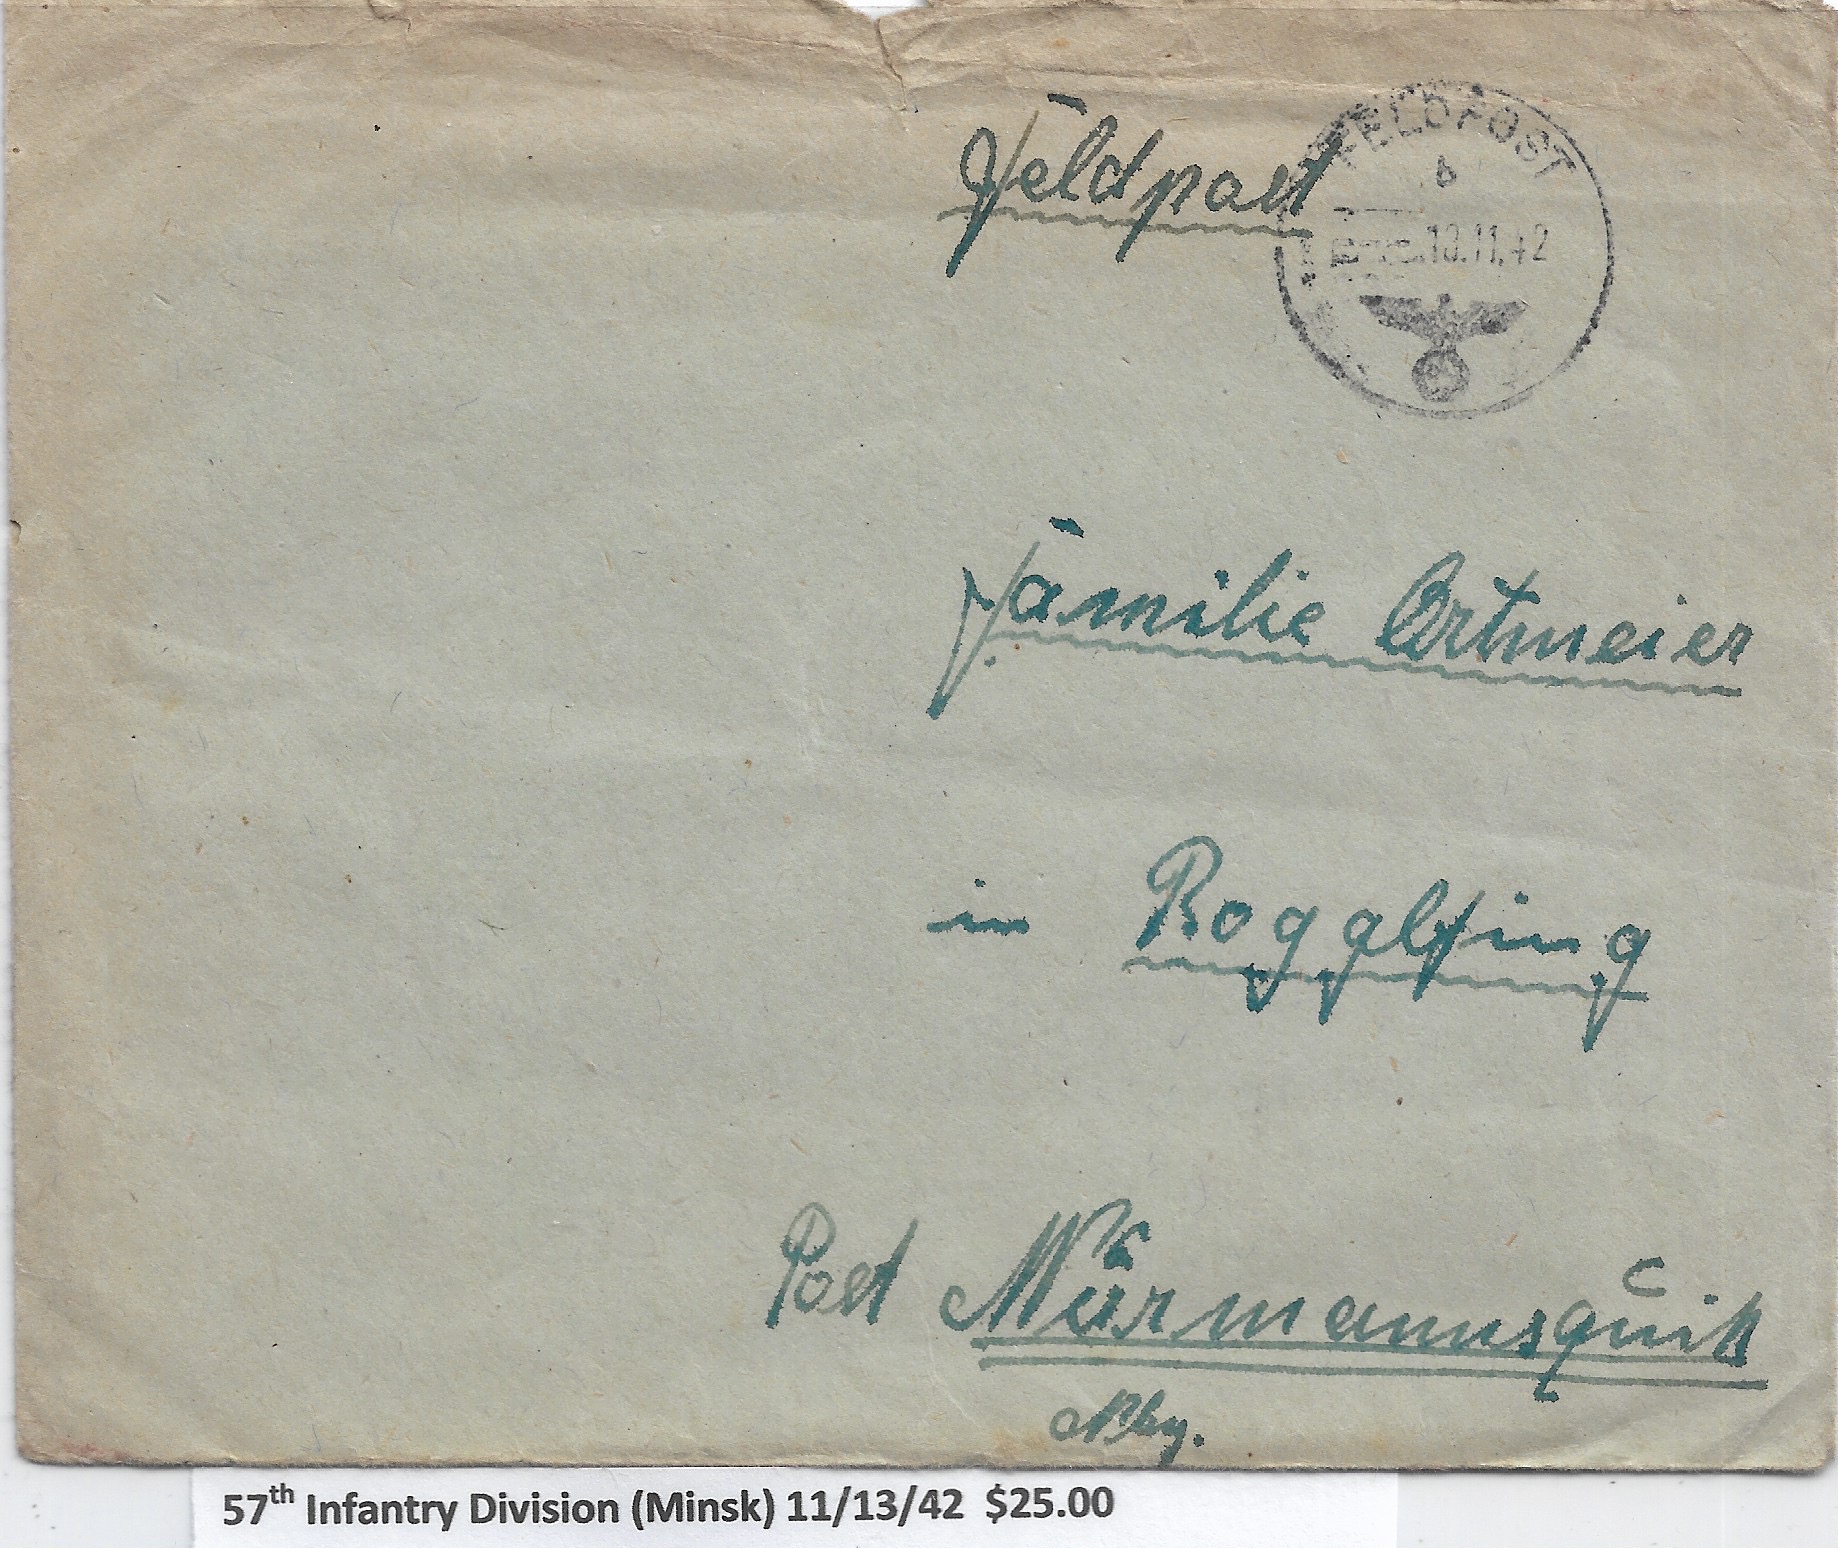 Feldpost
FELDPOST
b
13.11.42
Familie Ortmeier
in Rogglfing
Post Wurmannsquik
Nby.
57th Infantry Division (Minsk) 11/13/42 $25.00